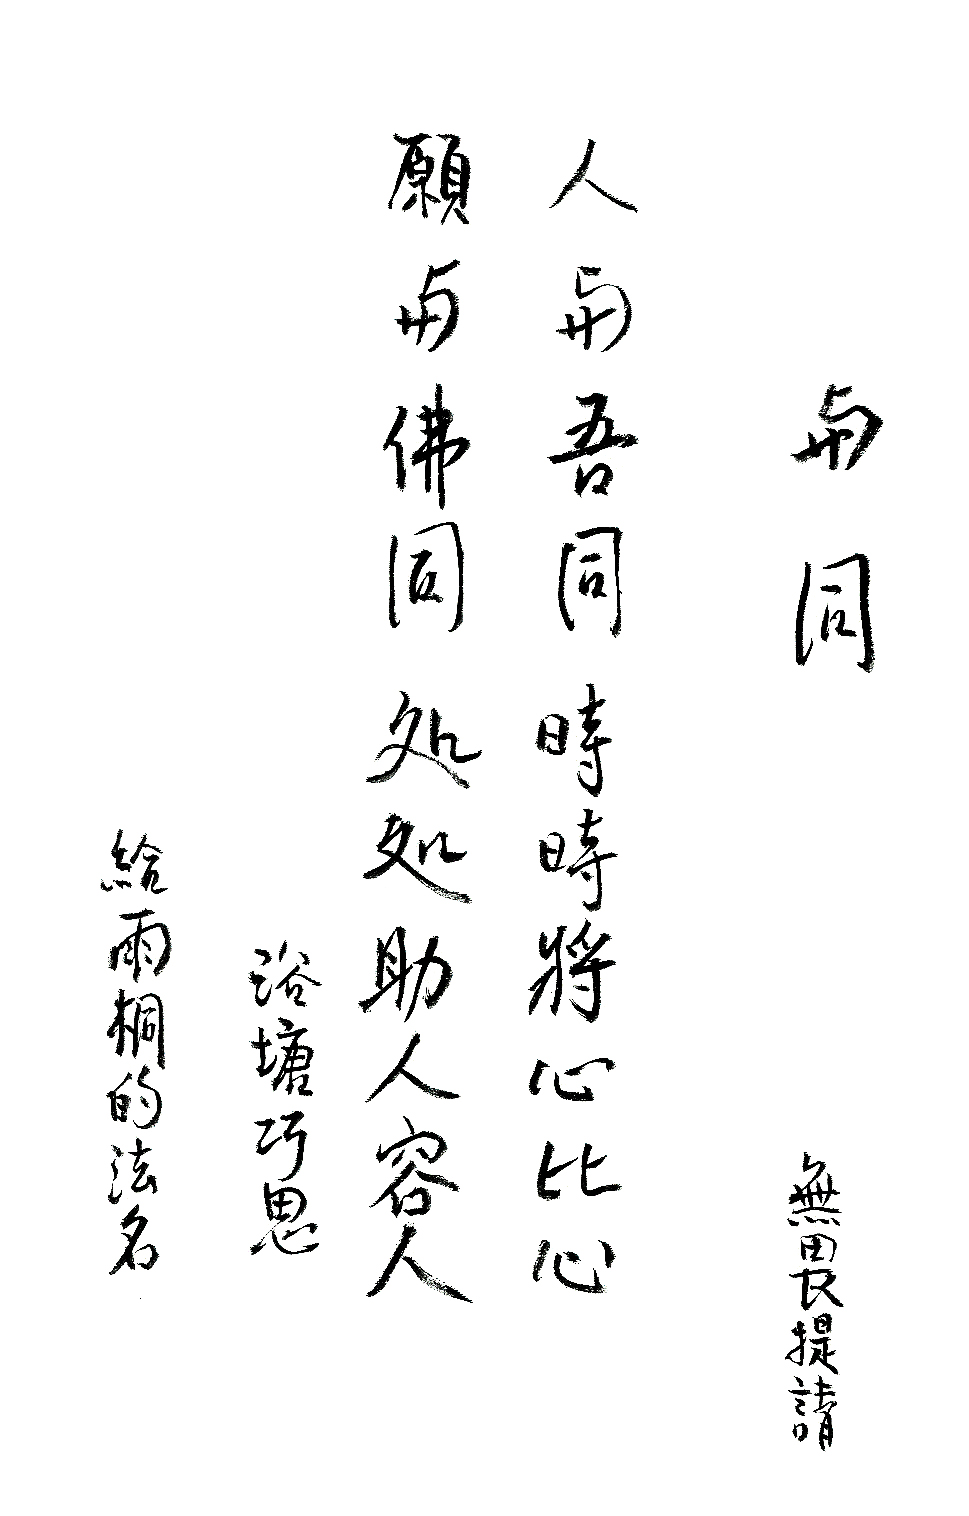 与同
無畏提請
人与吾同 時時將心比心
願与佛同 处处助人容人
浴塘巧思
給雨桐的法名